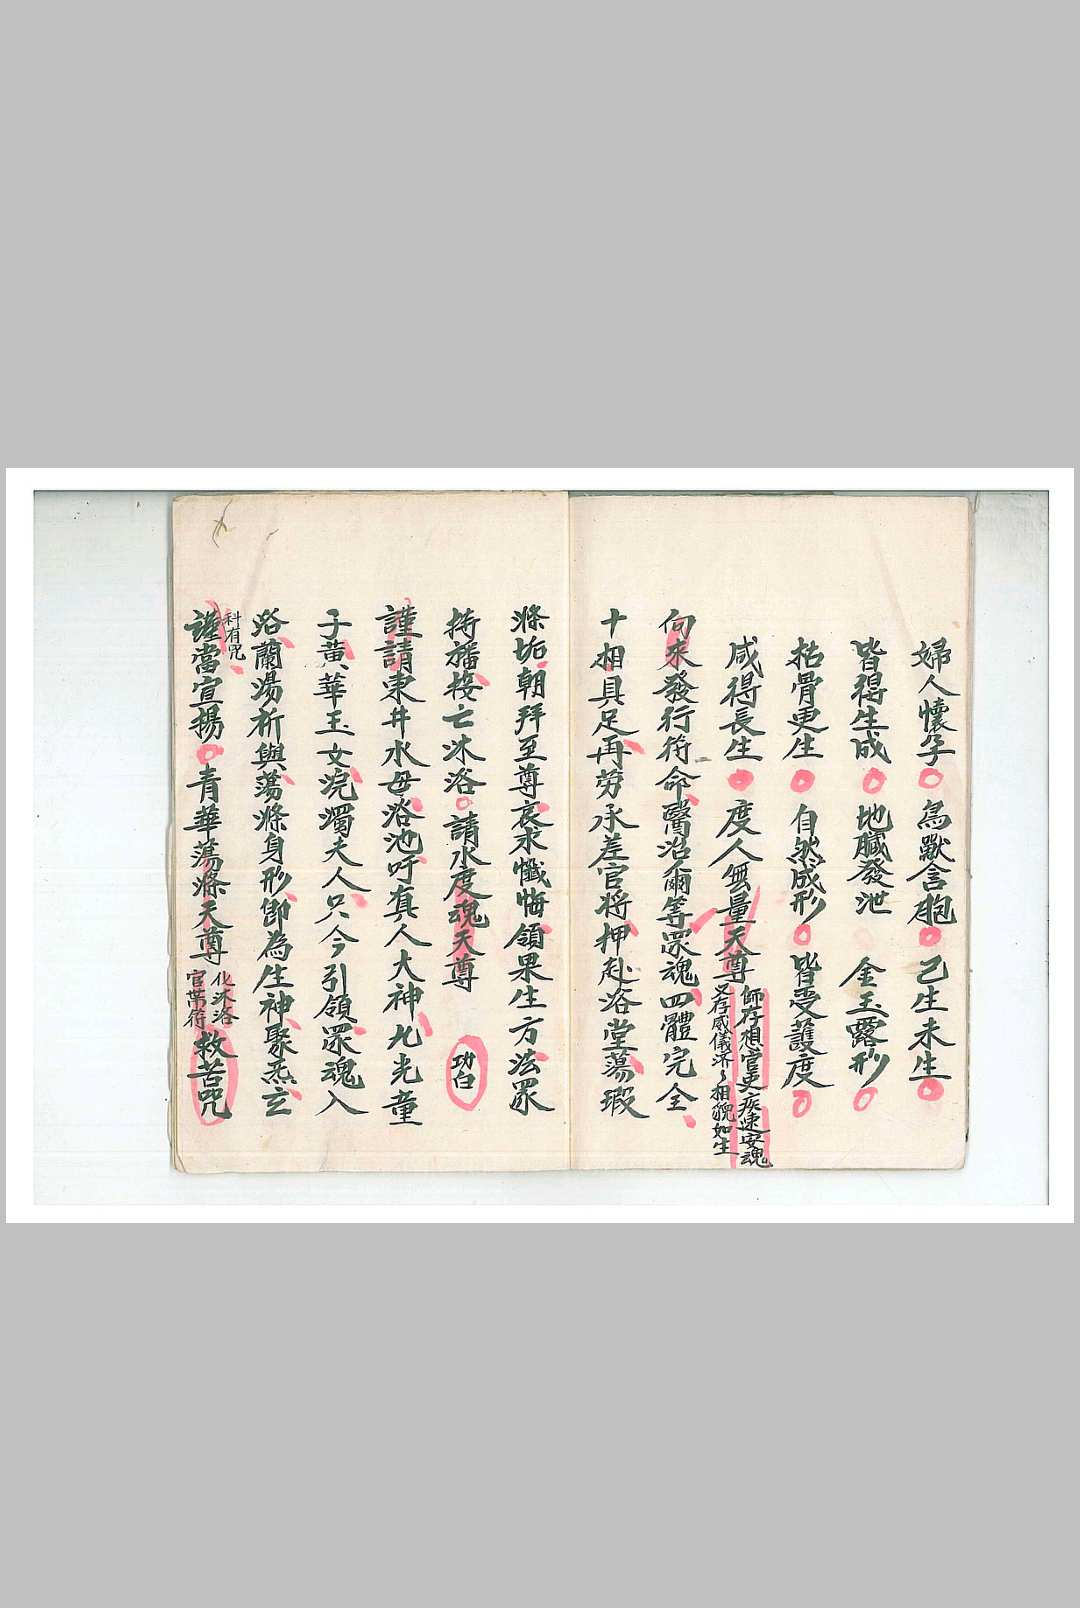 婦人懷孕○鳥獸含胞○已生未生○
皆得生成○地臟發泄　金玉露形○
枯骨更生○自然成形○皆受護度○
咸得長生○度人無量天尊
師存想官吏疾速安魂
又存威儀濟〻相貌如生
向來發行符命醫治爾等眾魂四體完全
十相具足再勞承差官將押赴浴堂蕩瑕
滌垢朝拜至尊哀求懺悔領果生方法眾
持旛接亡沐浴○請水度魂天尊　功白
謹請東井水母浴池吁真人大神九光童
子黃華玉女浣濁夫人只今引領眾魂入
浴蘭湯析與蕩滌身形卽為生神聚炁玄
科有咒
謹當宣揚○青華蕩滌天尊
化沐浴
官蒂符
救苦咒